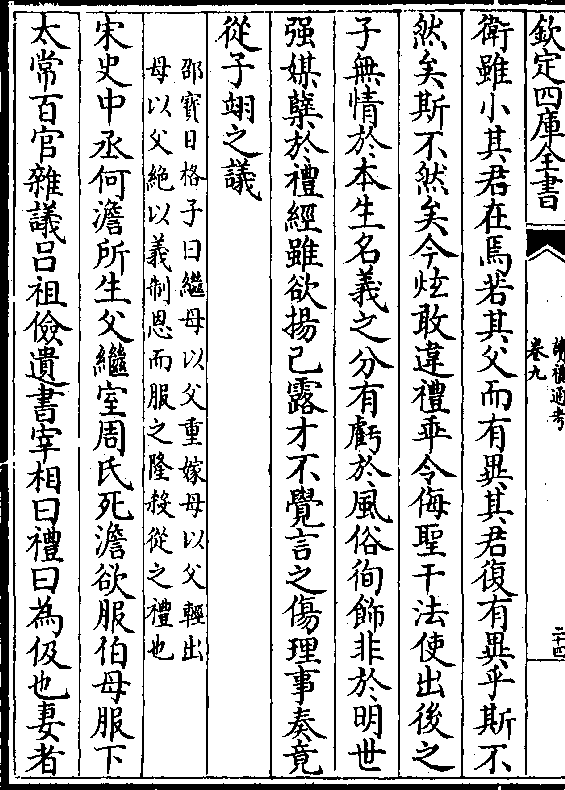 欽定四庫全書
讀禮通考
卷九
二十四
衛雖小其君在焉若其父而有異其君復有異乎斯不
然矣斯不然矣今炫敢違禮乖令侮聖干法使出後之
子無情於本生名義之分有虧於風俗徇飾非於明世
强媒孽於禮經雖欲揚己露才不覺言之傷理事奏竟
從子翊之議
邵寳曰格子曰繼母以父重嫁母以父輕出
母以父絶以義制恩而服之隆殺從之禮也
宋史中丞何澹所生父繼室周氏死澹欲服伯母服下
太常百官雜議吕祖儉遺書宰相曰禮曰為伋也妻者